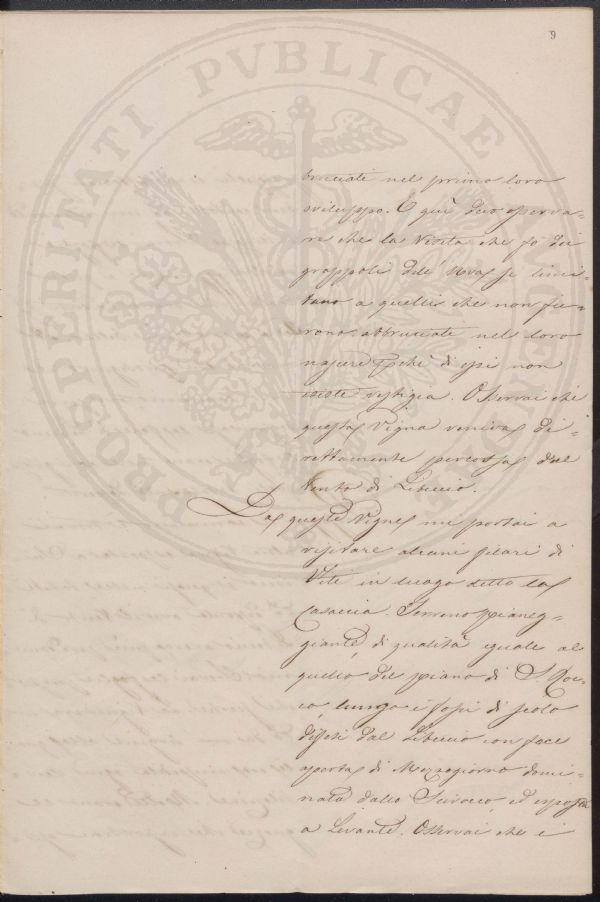 9
PROSPERITATI PVBLICAE AVGENDAE
bruciate nel primo loro
sviluppo. E quì devo osserva-
re che la Visita che fò dei
grappoli dell' Uva si limi-
tano a quelli che non fu-
rono abbruciate nel loro
nascere perchè di essi non
esiste vestigia. Osservai che
questa Vigna veniva di-
rettamente percossa dal
Vento di Libeccio.
Da queste Vigne mi portai a
visitare alcuni filari di
Vite in luogo detto la
Casaccia. Terreno pianeg-
giante di qualità eguale al
quello del piano di S. Roc-
co, lungo i fossi di scolo
difesi dal Libeccio con face
aperta di Mezzogiorno domi-
nata dallo Scirocco, ed esposta
a Levante. Osservai che i